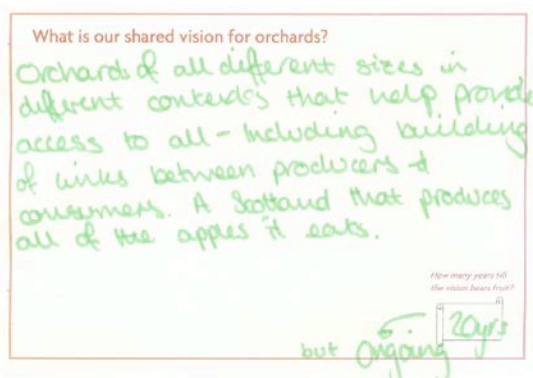 What is our shared vision for orchards?
Orchards of all different sizes in
different contexts that help provide
access to all - including building
of links between producers &
consumers. A Scotland that produces
all of the apples it eats.
How many years till
the vision bears fruit?
20yrs
but ongoing